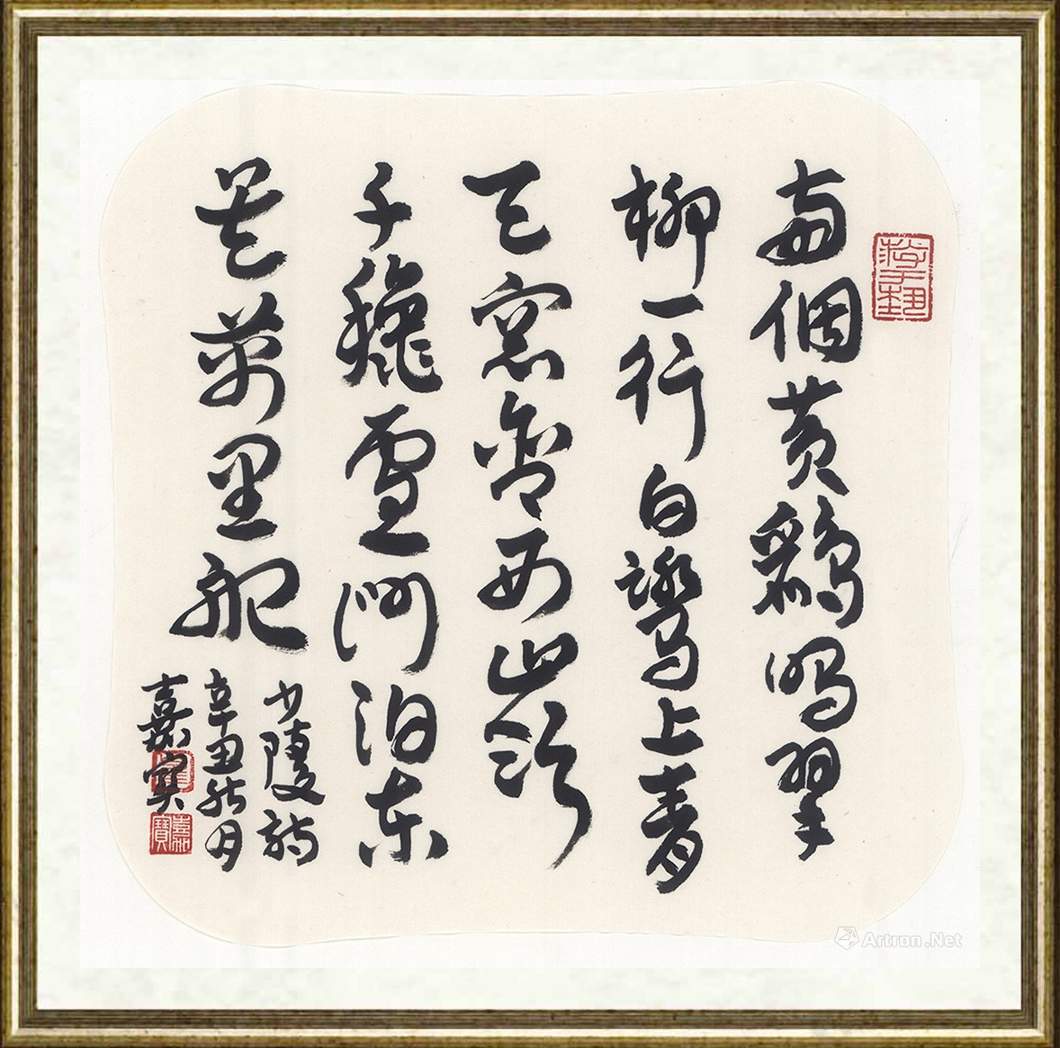 两個黄鸝鳴翠
柳一行白鷺上青
天窓含西嶺
千龝雪門泊東
吴萬里船
少陵詩
辛丑秋月
嘉寶
嘉寶
Artron.Net